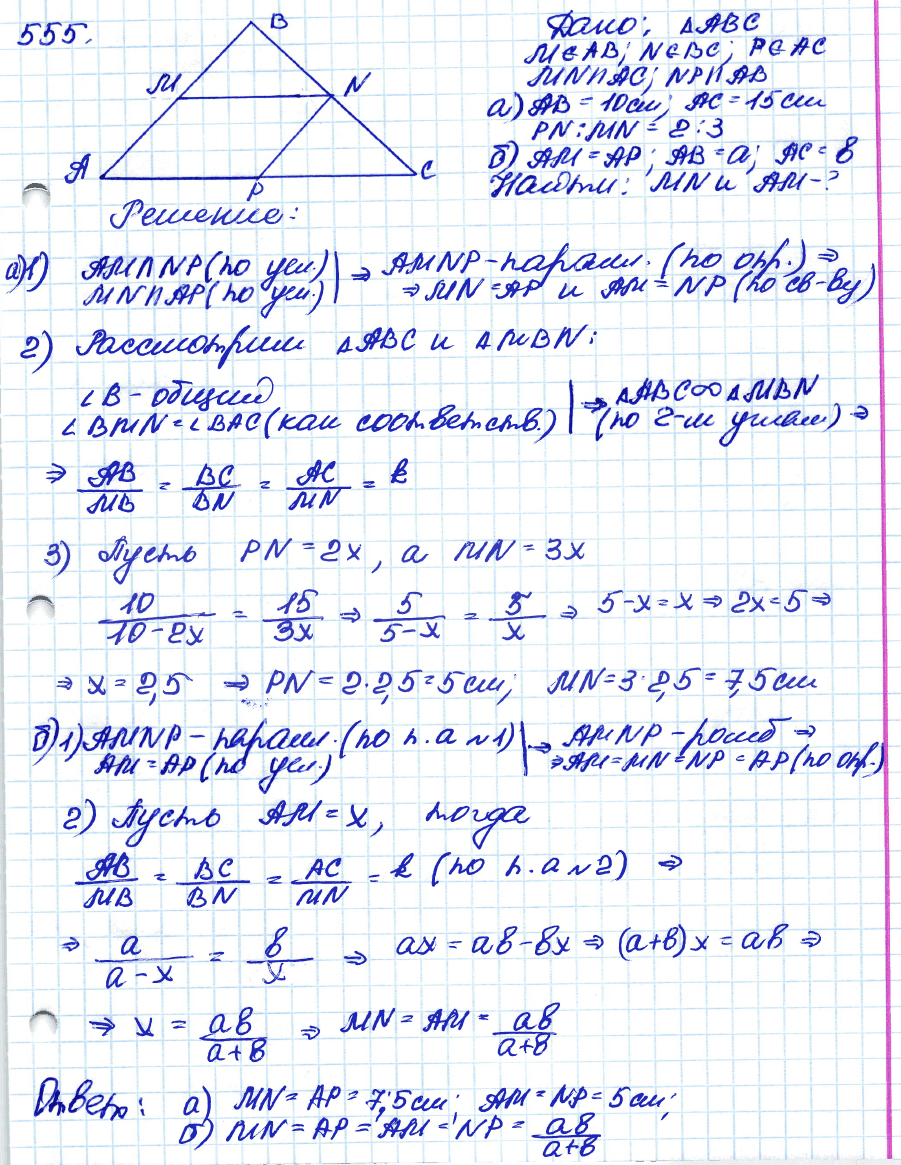 555.
B
M
N
A
P
C
Дано: △ABC
M∈AB; N∈BC; P∈AC
MN∩AC; NP∩AB
а) AB = 10см; AC = 15см
PN : MN = 2 : 3
б) AM = AP; AB = a; AC = в
Найти: MN и AM - ?
Решение:
а)1) AM∩NP (по усл.) | ⇒ AMNP – паралл. (по опр.) ⇒
MN∩AP (по усл.) | ⇒ MN = AP и AM = NP (по св-ву)
2) Рассмотрим △ABC и △MBN:
∠B – общий | ⇒ △ABC∞△MBN
∠BMN = ∠BAC (как соответств.) | (по 2-м углам) ⇒
⇒ AB/MB = BC/BN = AC/MN = k
3) Пусть PN = 2x, а MN = 3x
10/(10 - 2x) = 15/3x ⇒ 5/(5 - x) = 5/x ⇒ 5 - x = x ⇒ 2x = 5 ⇒
⇒ x = 2,5 ⇒ PN = 2·2,5 = 5см; MN = 3·2,5 = 7,5см
б)1) AMNP – паралл. (по п.а №1) | ⇒ AMNP – ромб ⇒
AM = AP (по усл.) | ⇒ AM = MN = NP = AP (по опр.)
2) Пусть AM = x, тогда
AB/MB = BC/BN = AC/MN = k (по п.а №2) ⇒
⇒ a/(a - x) = в/x ⇒ ax = aв - вx ⇒ (a+в)x = aв ⇒
⇒ x = aв/(a+в) ⇒ MN = AM = aв/(a+в)
Ответ: а) MN = AP = 7,5см; AM = NP = 5см;
б) MN = AP = AM = NP = aв/(a+в)